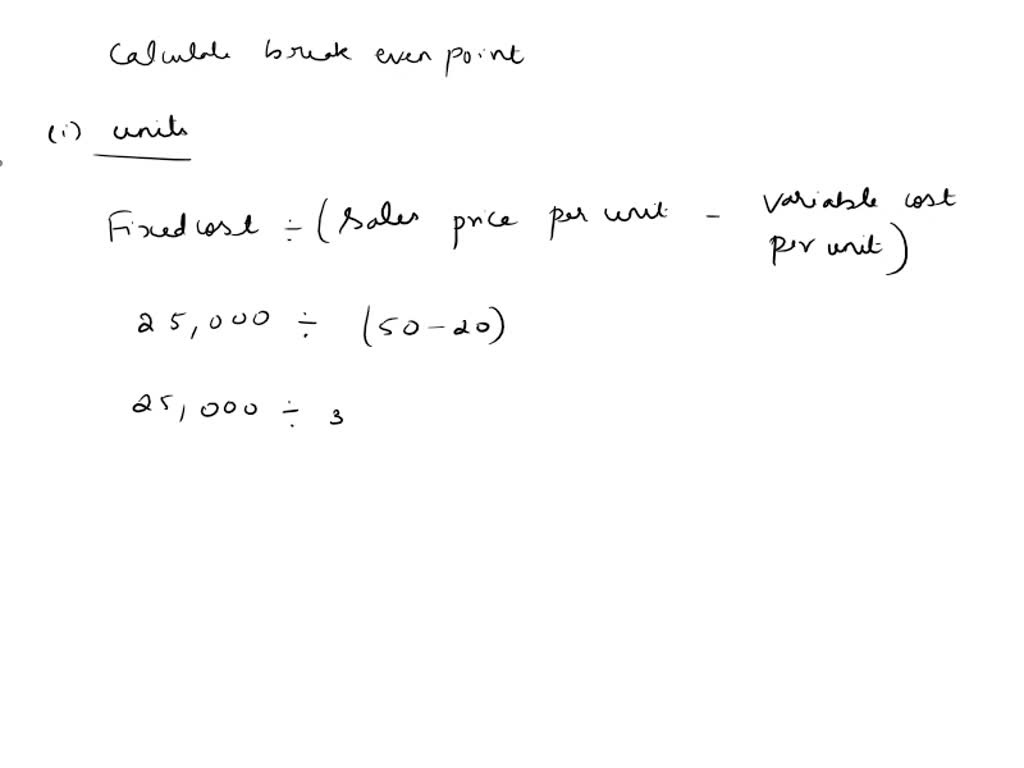 Calculate break even point
(i) units
Fixed cost ÷ (Sales price per unit - Variable cost
per unit)
25,000 ÷ (50-20)
25,000 ÷ 3